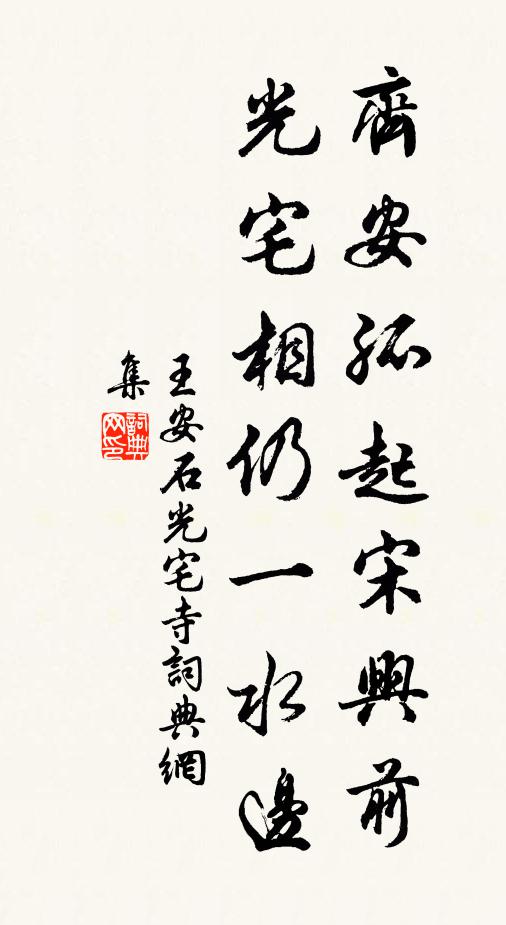 齊安孤起宋興前
光宅相仍一水邊
王安石光宅寺詞典網
集
詞典网印